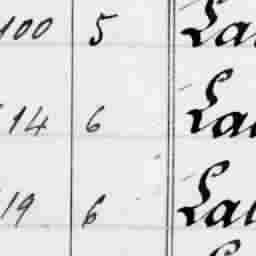 100 5 La
14 6 La
19 6 La